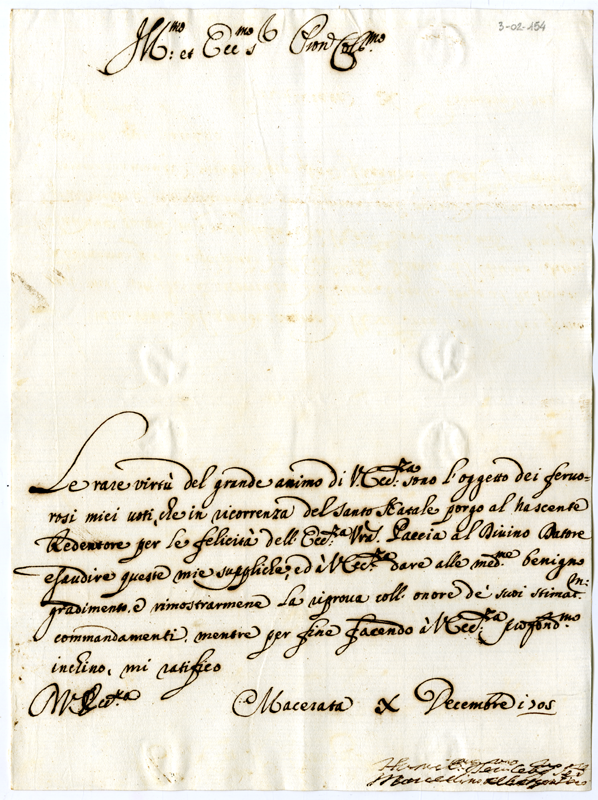 3-02-154
Ill.mo et Ecc.mo S.r Pron Coll.mo
Le rare virtù del grande animo di V. Ecc.za sono l'oggetto dei feruo-
rosi miei uoti, che in ricorrenza del santo Natale porgo al nascente
Redentore per le felicità dell'Ecc.za Vra. Paccia al Diuino Datore
esaudire queste mie suppliche, ed à V. Ecc.za dare alle med.me benigno
gradimento, e rimostrarmene la riproua coll'onore de' suoi stimat.mi
commandamenti, mentre per fine facendo à V. Ecc.za profond.mo
inchino, mi ratifico
Di V. Ecc.za Macerata X Decembre 1705
Marcellino